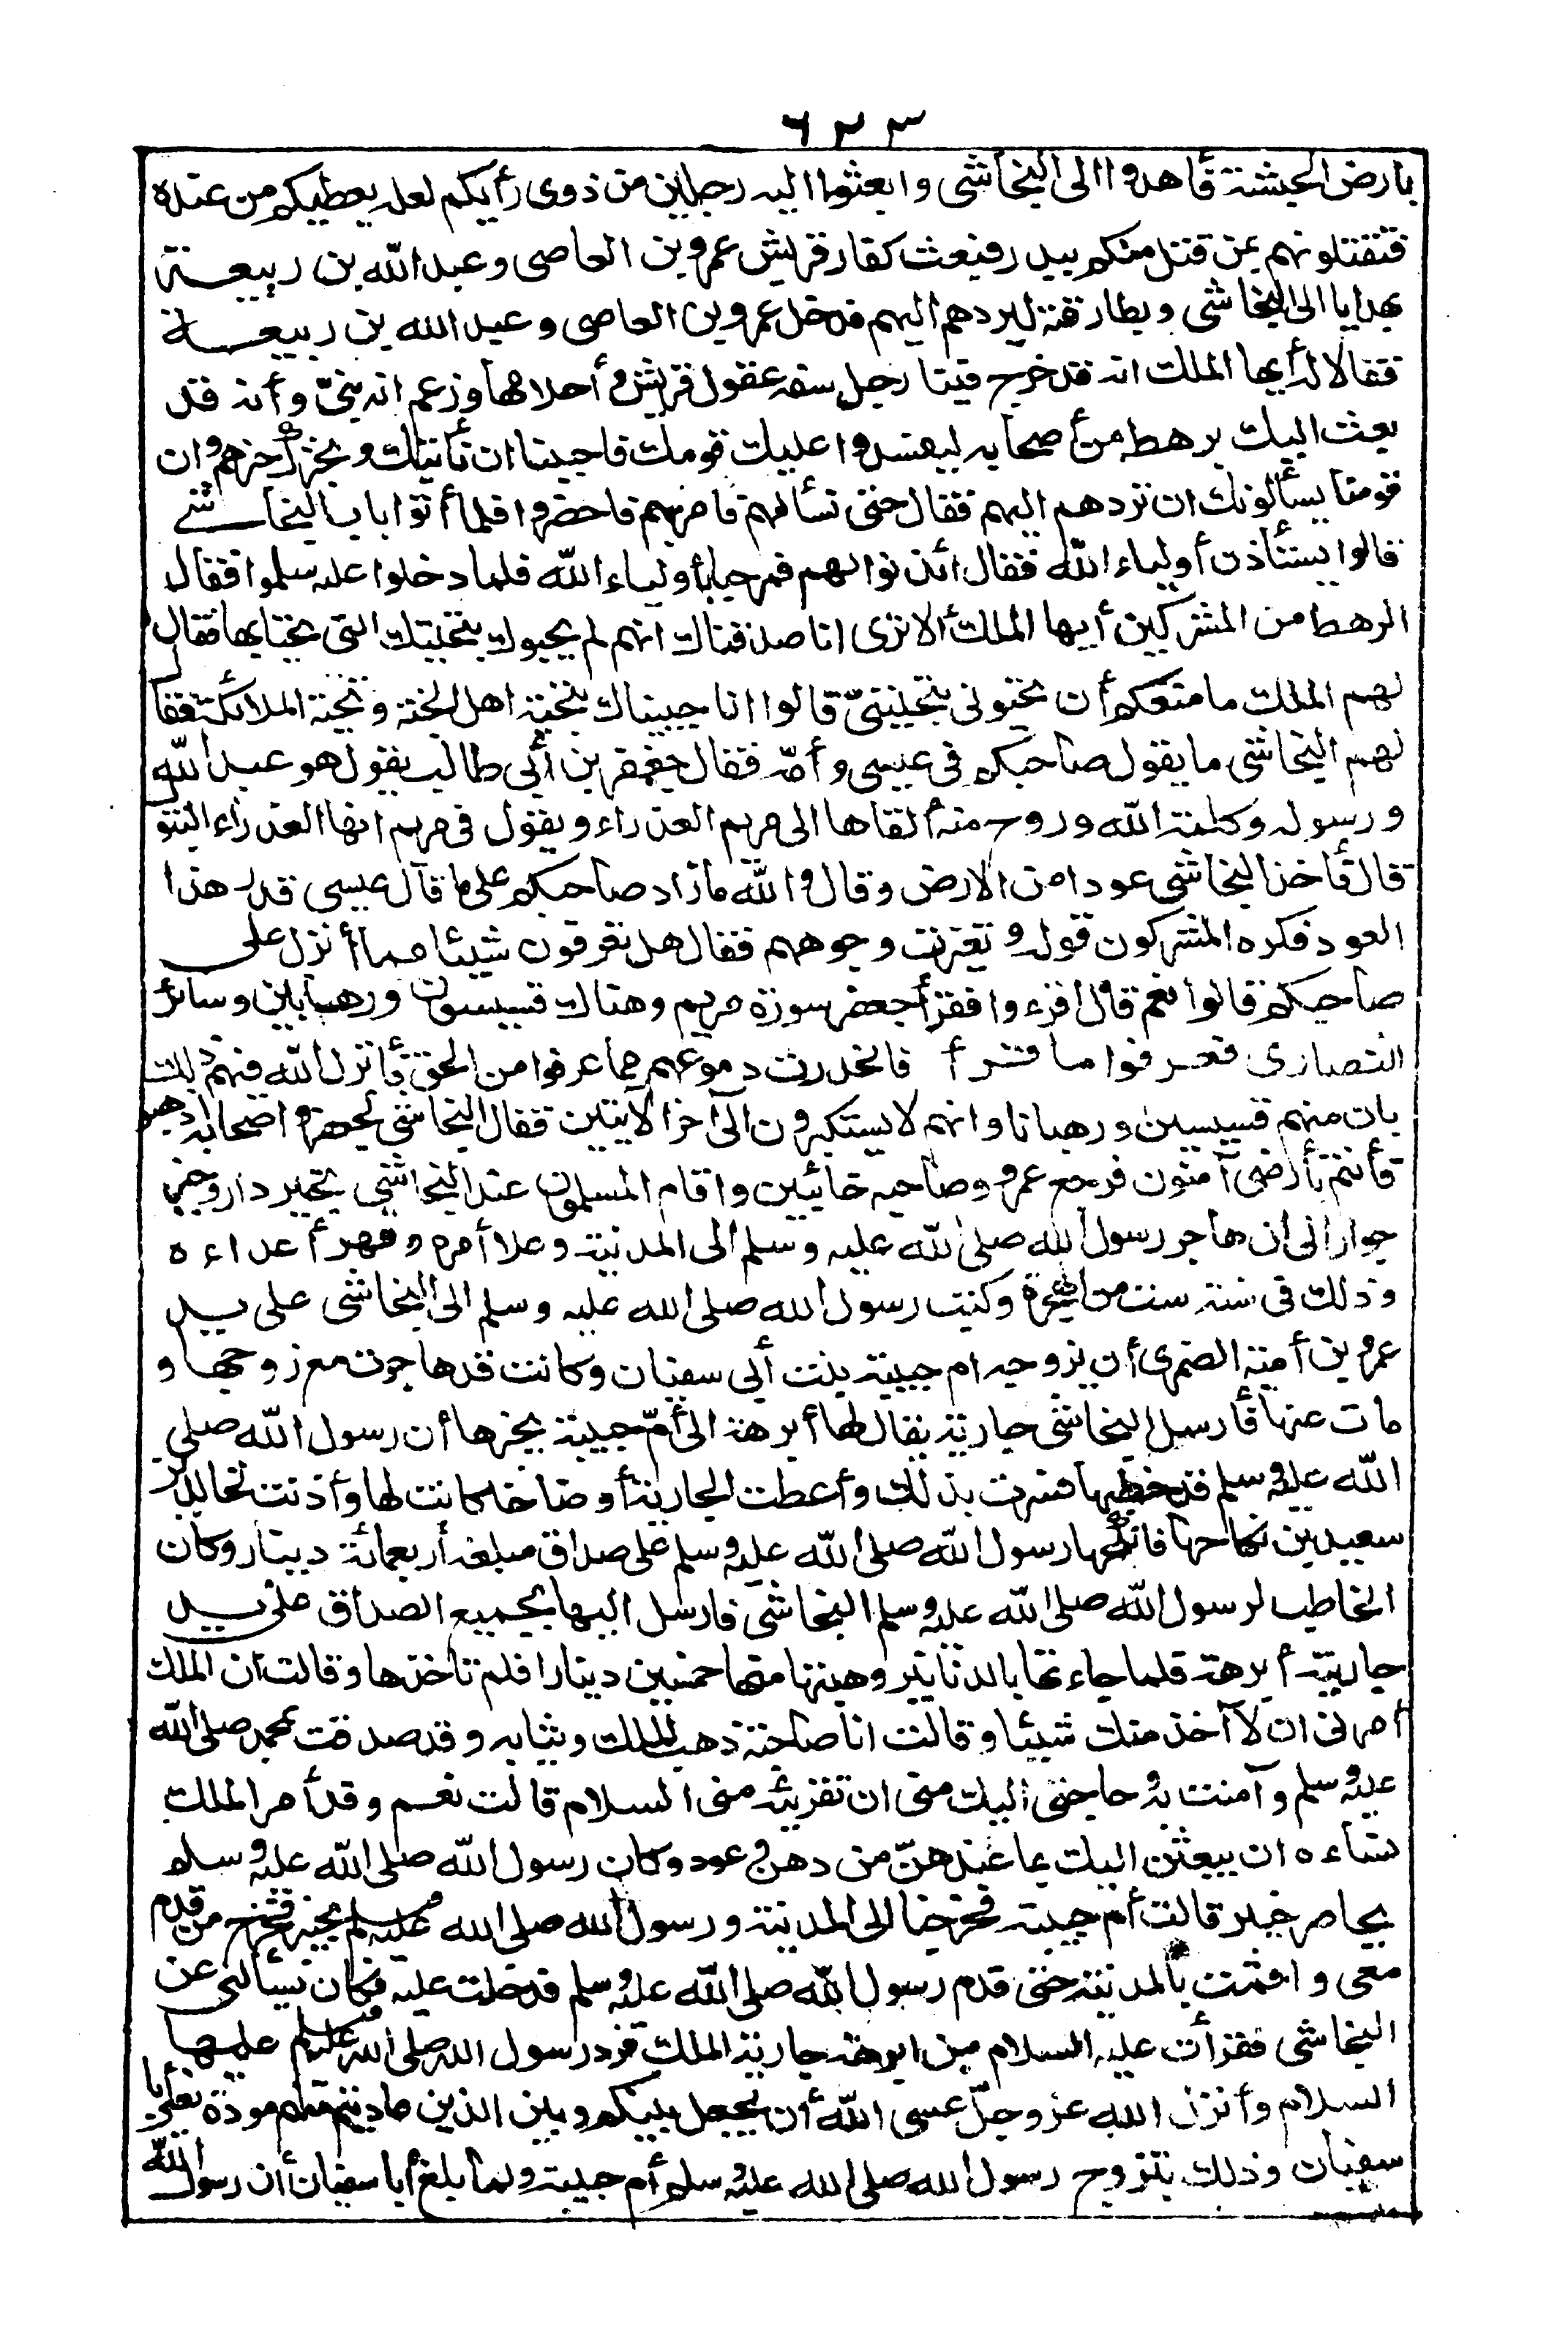 ٦٢٣
بارض الحبشة فأهدوا الى النجاشى وابعثوا اليه رجلين من ذوى رأيكم لعله يعطيكم من عنده
فتقتلونهم بمن قتل منكم ببدر فبعث كفار قريش عمرو بن العاصى وعبد الله بن ربيعة
بهدايا الى النجاشى وبطارقته ليردهم اليهم فدخل عمرو بن العاصى وعبد الله بن ربيعة
فقالا له أيها الملك انه قد خرج فينا رجل سفه عقول قريش وأحلامها وزعم انه نبىّ وأنه قد
بعث اليك برهط من أصحابه ليفسدوا عليك قومك فاحببنا ان نأتيك ونخبرك خبرهم وان
قومنا يسألونك ان تردهم اليهم فقال حتى نسألهم فامر بهم فاحضروا فلما أتوا باب النجاشى
قالوا يستأذن أولياء الله فقال ائذنوا لهم فمرحبا بأولياء الله فلما دخلوا عليه سلموا فقال
الرهط من المشركين أيها الملك ألا ترى انا صدقناك انهم لم يحيوك بتحيتك التى تحيا بها فقال
لهم الملك ما منعكم أن تحيونى بتحيتىّ قالوا انا حييناك بتحية اهل الجنة وتحية الملائكة فقال
لهم النجاشى ما يقول صاحبكم فى عيسى وأمّه فقال جعفر بن أبى طالب يقول هو عبد الله
ورسوله وكلمة الله وروح منه ألقاها الى مريم العذراء ويقول فى مريم انها العذراء البتول
قال فأخذ النجاشى عودا من الارض وقال والله ما زاد صاحبكم على ما قال عيسى قدر هذا
العود فكره المشركون قوله وتغيرت وجوههم فقال هل تعرفون شيئا مما أنزل على
صاحبكم قالوا نعم قال اقرءوا فقرأ جعفر سورة مريم وهناك قسيسون ورهبابين وسائر
النصارى فعرفوا ما قرأ فانحدرت دموعهم مما عرفوا من الحق فأنزل الله فيهم ذلك
بان منهم قسيسين ورهبانا وانهم لا يستكبرون الى آخر الآيتين فقال النجاشى لجعفر واصحابه اذهبوا
فأنتم بأرضى آمنون فرجع عمرو وصاحبه خائبين واقام المسلمون عند النجاشى بخير دار وخير
جوار الى ان هاجر رسول الله صلى الله عليه وسلم الى المدينة وعلا أمره وقهر أعداءه
وذلك فى سنة ست من الهجرة وكتب رسول الله صلى الله عليه وسلم الى النجاشى على يد
عمرو بن أمية الضمرى أن يزوجه ام حبيبة بنت أبى سفيان وكانت قد هاجرت مع زوجها و
مات عنها فأرسل النجاشى جارية يقال لها أبرهة الى أمّ حبيبة يخبرها أن رسول الله صلى
الله عليه وسلم قد خطبها فسرت بذلك وأعطت الجارية أوضاخا كانت لها وأذنت لخالد بن
سعيد بن نكاحها فانكحها رسول الله صلى الله عليه وسلم على صداق مبلغه أربعمائة دينار وكان
الخاطب لرسول الله صلى الله عليه وسلم النجاشى فارسل اليها بجميع الصداق على يد
جاريته أبرهة فلما جاءتها بالدنانير وهبتها منها خمسين دينارا فلم تأخذها وقالت ان الملك
أمرنى ان لا آخذ منك شيئا وقالت انا صاحبة ذهب الملك وثيابه وقد صدقت بمحمد صلى الله
عليه وسلم وآمنت به وحاجتى اليك منى ان تقرئيه منى السلام قالت نعم وقد أمر الملك
نساءه ان يبعثن اليك بما عندهنّ من دهن وعود وكان رسول الله صلى الله عليه وسلم
بحاصر خيبر قالت أم حبيبة فخرجنا الى المدينة ورسول الله صلى الله عليه وسلم بخيبر فخرج من قدم
معى واقمت بالمدينة حتى قدم رسول الله صلى الله عليه وسلم فدخلت عليه فكان يسألنى عن
النجاشى فقرأت عليه السلام من ابرهة جارية الملك فرد رسول الله صلى الله عليه وسلم عليها
السلام وأنزل الله عز وجلّ عسى الله أن يجعل بينكم وبين الذين عاديتم منهم مودة يعنى أبا
سفيان وذلك بتزوج رسول الله صلى الله عليه وسلم أم حبيبة ولما بلغ أبا سفيان أن رسول الله